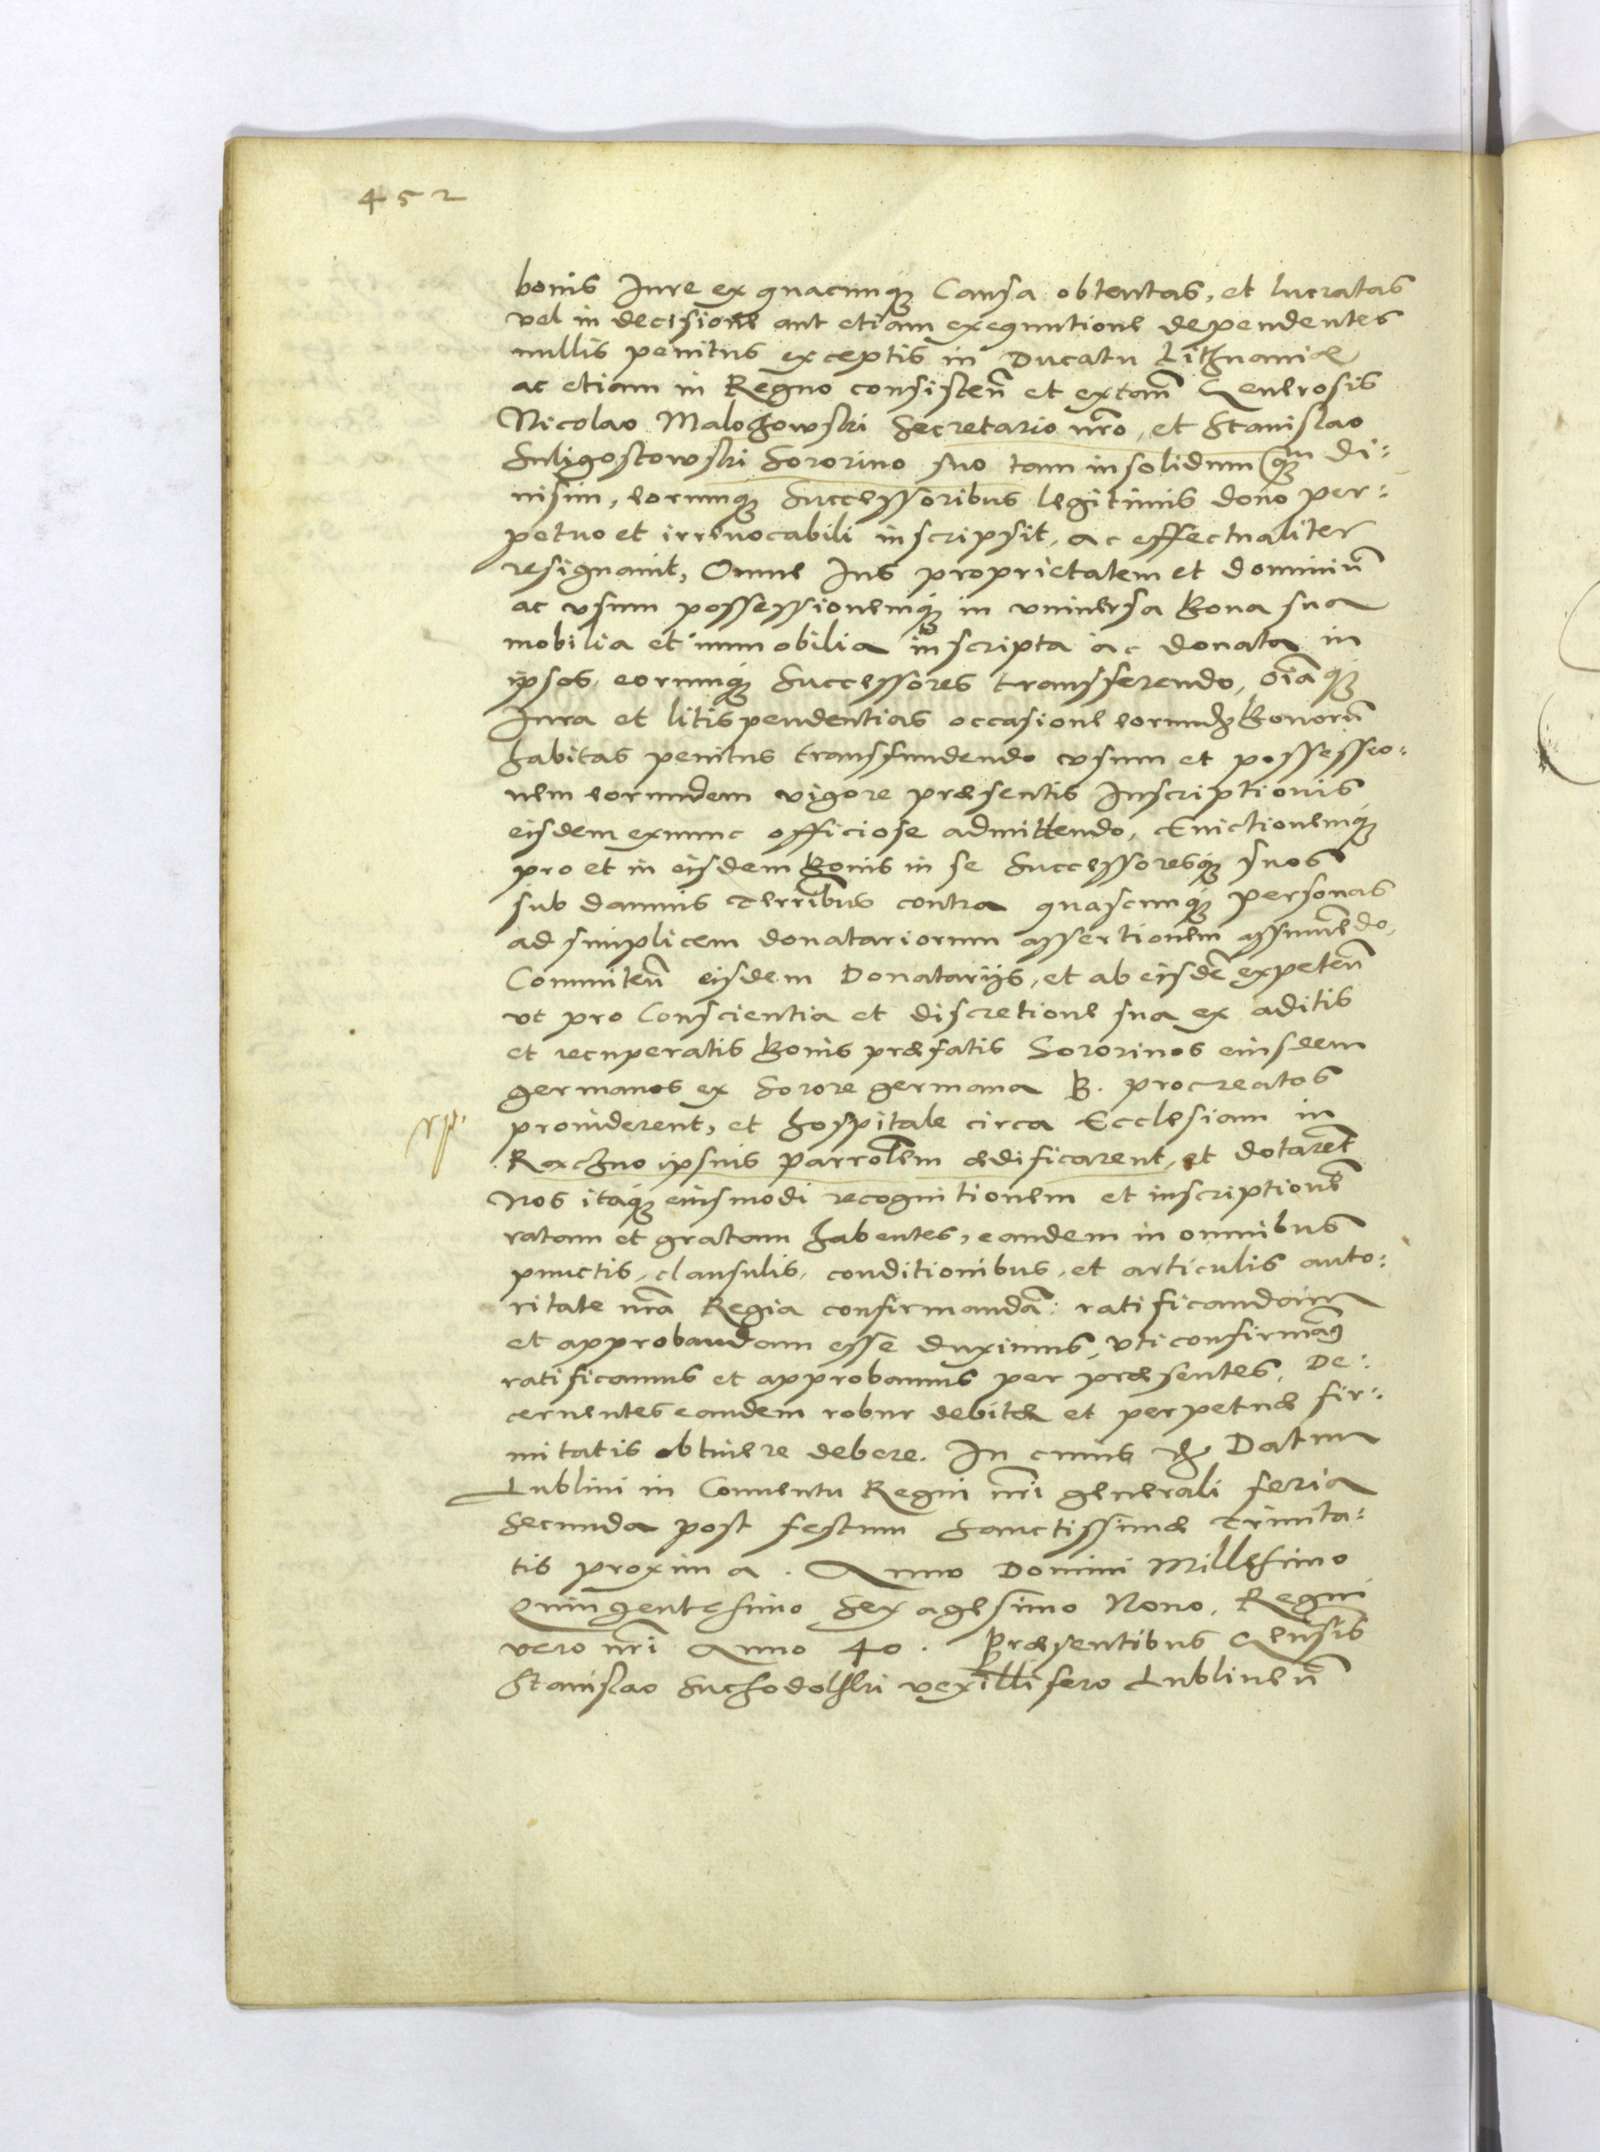 452
bonis Iure ex quacunq; Causa obtentas, et lucratas
vel in decisione aut etiam exequutione dependentes
nullis penitus exceptis in Ducatu Lithuaniæ
ac etiam in Regno consisteñ et extañ Generosis
Nicolao Malochowski Secretario nr̃o, et Stanislao
Suligostowski Sororino suo tam insolidum q̃m di:
uisim, eorumq; Successoribus legitimis dono per:
petuo et irreuocabili inscripsit, ac effectualiter
resignauit, Omne Ius proprietatem et dominiũ
ac vsum possessionemq; in vniuersa bona sua
mobilia et immobilia inscripta ac donata in
ipsos, eorumq; Successores transferendo, oĩaq;
Iura et litispendentias occasione eorund; bonorũ
habitas penitus transfundendo vsum et possessio:
nem eorundem vigore præsentis Inscriptionis
eisdem exnunc officiose admittendo, Euictionemq;
pro et in eisdem bonis in se Successoresq; suos
sub damnis terrr̃ibus contra quascunq; personas
ad simplicem donatariorum assertionem assumẽdo,
Commiteñ eisdem Donatarijs, et ab eisdẽ expeteñ
vt pro Conscientia et discretione sua ex aditis
et recuperatis bonis præfatis Sororinos eiusdem
germanos ex Sorore germana B. procreatos
prouiderent, et hospitale circa Ecclesiam in
Rachno ipsius Parro͠lem ædificarent, et dotarẽt
Nos itaq; eiusmodi recognitionem et inscriptionẽ
ratam et gratam habentes, eandem in omnibus
punctis, clausulis, conditionibus, et articulis auto:
ritate nr̃a Regia confirmandã: ratificandam
et approbandam esse duximus, vti confirmãꝯ
ratificamus et approbamus per præsentes, De:
cernentes eandem robur debitæ et perpetuæ fir:
mitatis obtinere debere. In cuius &c Datum
Lublini in Conuentu Regni nr̃i generali feria
Secunda post festum Sanctissimæ Trinita:
tis proxima. Anno Domini Millesimo
Quingentesimo Sexagesimo Nono, Regni
vero nr̃i Anno 40. Præsentibus Gen̄sis
Stanislao Suchodolski vexillifero Lublineñ